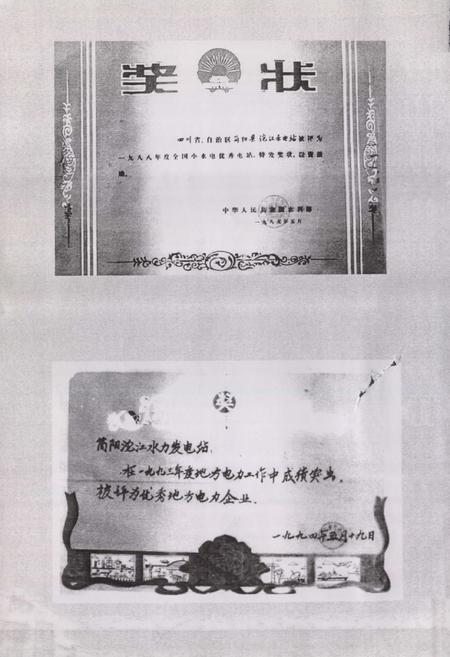 奖状
四川省、自治区简阳县沱江水电站被评为
一九八八年度全国小水电优秀电站，特发奖状，以资鼓
励。
中华人民共和国水利部
一九八九年五月
奖
简阳沱江水力发电站：
在一九九三年度地方电力工作中成绩突出，
被评为优秀地方电力企业。
一九九四年五月十九日